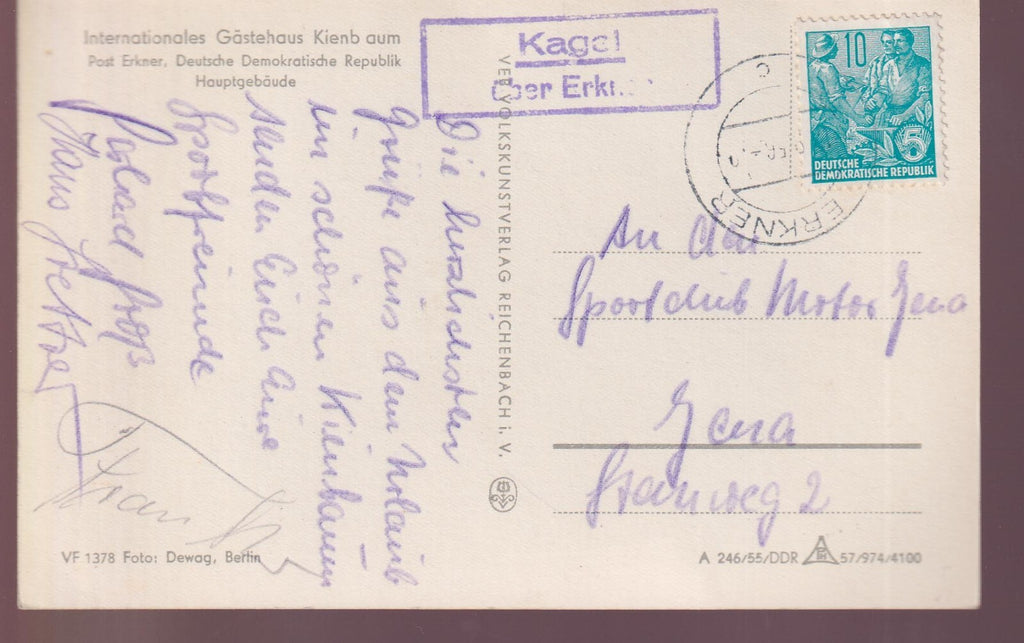 Internationales Gästehaus Kienbaum
Post Erkner, Deutsche Demokratische Republik
Hauptgebäude
Kagel
über Erkner
10
5
DEUTSCHE
DEMOKRATISCHE REPUBLIK
ERKNER
Die herzlichsten
Grüße aus dem Urlaub
im schönen Kienbaum
senden Euch Eure
Sportfreunde
Hans
VEB VOLKSKUNSTVERLAG REICHENBACH i. V.
An den
Sportclub Motor Jena
Jena
Stadtweg 2
VF 1378 Foto: Dewag, Berlin
A 246/55/DDR 57/974/4100